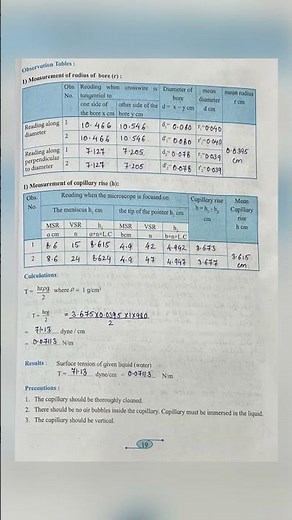 Observation Tables :
1) Measurement of radius of bore (r) :
Obs. No. Reading when crosswire is tangential to Diameter of bore d = x ~ y cm mean diameter d cm mean radius r cm
one side of the bore x cm other side of the bore y cm
Reading along diameter 1 10.466 10.546 d₁= 0.080 r₁=0.040
2 10.466 10.546 d₂= 0.080 r₂=0.040
0.0395 cm
Reading along perpendicular to diameter 1 7.127 7.205 d₃= 0.078 r₃=0.039
2 7.127 7.205 d₄= 0.078 r₄=0.039
1) Measurement of capillary rise (h):
Obs. No. Reading when the microscope is focused on Capillary rise h = h₁ - h₂ cm Mean Capillary rise h cm
The meniscus h₁ cm the tip of the pointer h₂ cm
MSR a cm VSR n h₁ a+n×L.C MSR bcm VSR n h₂ b+n×L.C
1 8.6 15 8.615 4.9 42 4.942 3.673
2 8.6 24 8.624 4.9 47 4.947 3.677 3.615 cm
Calculations:
T = hrρg / 2 where ρ = 1 g/cm³
T = hrg / 2 = 3.675×0.0395×1×980 / 2
= 71.13 dyne / cm
= 0.07113 N/m
Results : Surface tension of given liquid (water)
T = 71.13 dyne/cm = 0.07113 N/m
Precautions :
1. The capillary should be thoroughly cleaned.
2. There should be no air bubbles inside the capillary. Capillary must be immersed in the liquid.
3. The capillary should be vertical.
19